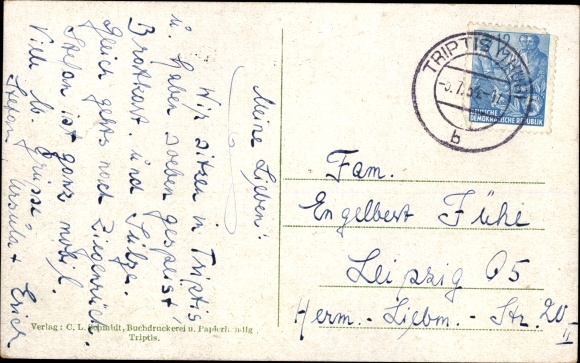 Meine Lieben!
Wir sitzen in Triptis
u. haben soeben gespeist,
Bratkart. und Sülze.
Gleich gehts nach Ziegenrück.
Stefan ist ganz mobil.
Viele lb. Grüsse
Stefan, Ursula + Erich
TRIPTIS
-5.7.54.-17
b
DEUTSCHE
DEMOKRATISCHE REPUBLIK
Fam.
Engelbert Fühe
Leipzig O5
Herm.-Liebm.-Str. 20
II
Verlag: C. L. Schmidt, Buchdruckerei u. Papierhandlg
Triptis.